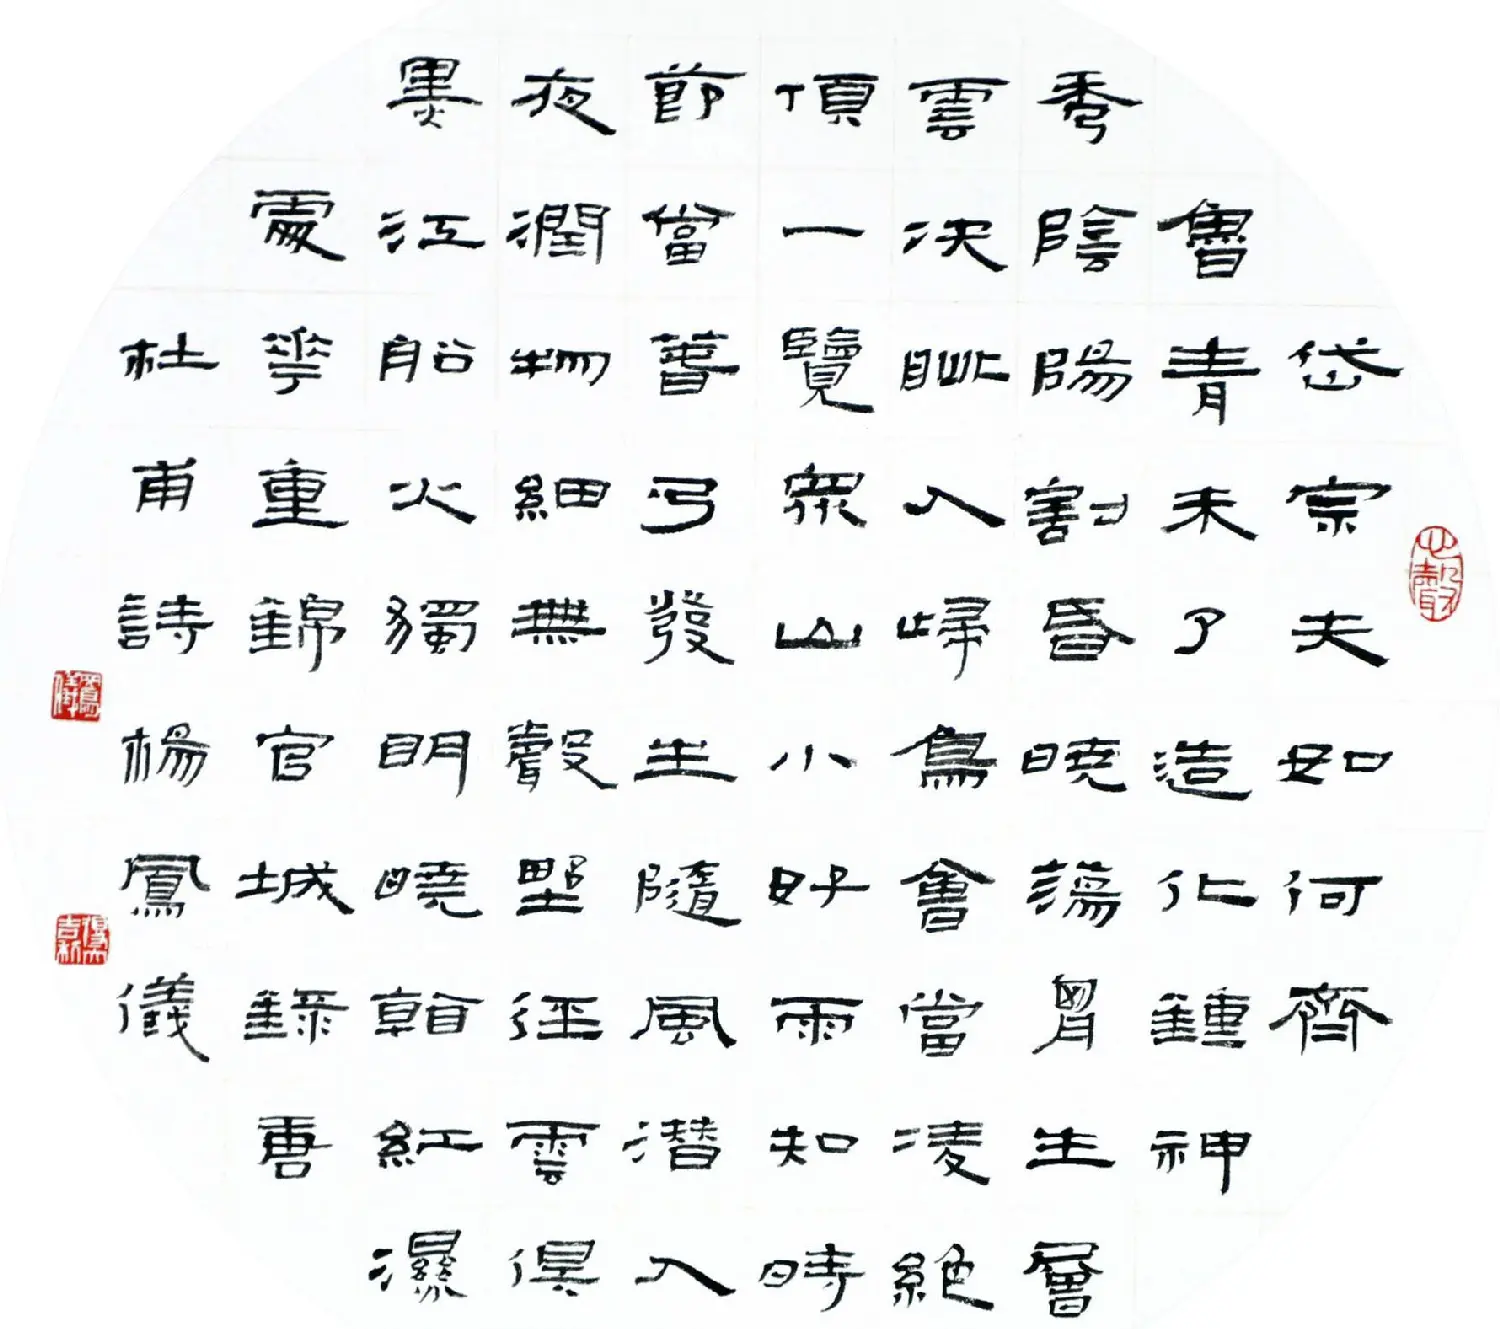 心聲
岱宗夫如何齊
魯青未了造化鍾神
秀陰陽割昏曉蕩胷生層
雲决眦入歸鳥會當凌絕
頂一覽眾山小好雨知時
節當春乃發生隨風潜入
夜潤物細無聲野徑雲俱
黑江船火獨明曉看紅濕
處花重錦官城錄唐
杜甫詩楊鳳儀